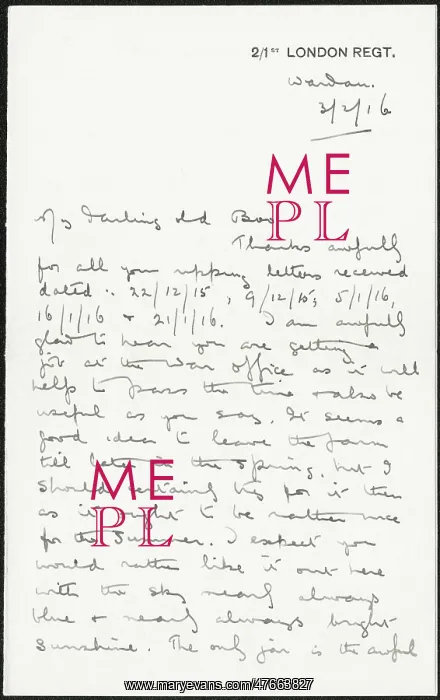 2/1ST LONDON REGT.
Wardan.
3/2/16
ME
PL
My Darling old Boo
Thanks awfully
for all your ripping letters received
dated :- 22/12/15, 9/12/15, 5/1/16,
16/1/16 & 21/1/16. I am awfully
glad to hear you are getting a
job at the War Office as it will
help to pass the time & also be
useful as you say. It seems a
good idea to leave the farm
till later in the Spring, but I
should certainly try for it then
as it ought to be rather nice
ME
PL
for the Summer. I expect you
would rather like it out here
with the sky nearly always
blue & nearly always bright
sunshine. The only jar is the awful
www.maryevans.com/47663827